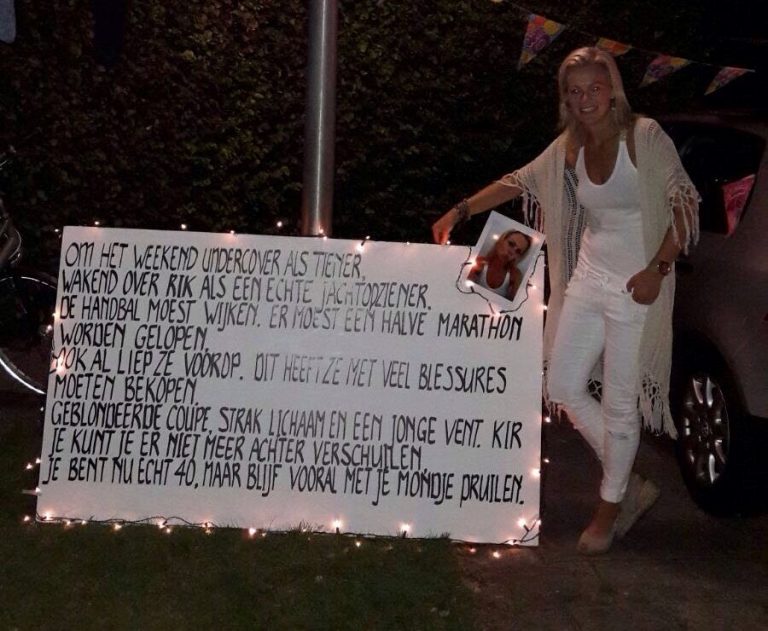 OM HET WEEKEND UNDERCOVER ALS TIENER,
WAKEND OVER RIK ALS EEN ECHTE JACHTOPZIENER.
DE HANDBAL MOEST WIJKEN. ER MOEST EEN HALVE MARATHON
WORDEN GELOPEN.
OOK AL LIEP ZE VOOROP. DIT HEEFT ZE MET VEEL BLESSURES
MOETEN BEKOPEN.
GEBLONDEERDE COUPE, STRAK LICHAAM EN EEN JONGE VENT. KIR
JE KUNT JE ER NIET MEER ACHTER VERSCHUILEN,
JE BENT NU ECHT 40, MAAR BLIJF VOORAL MET JE MONDJE PRUILEN.